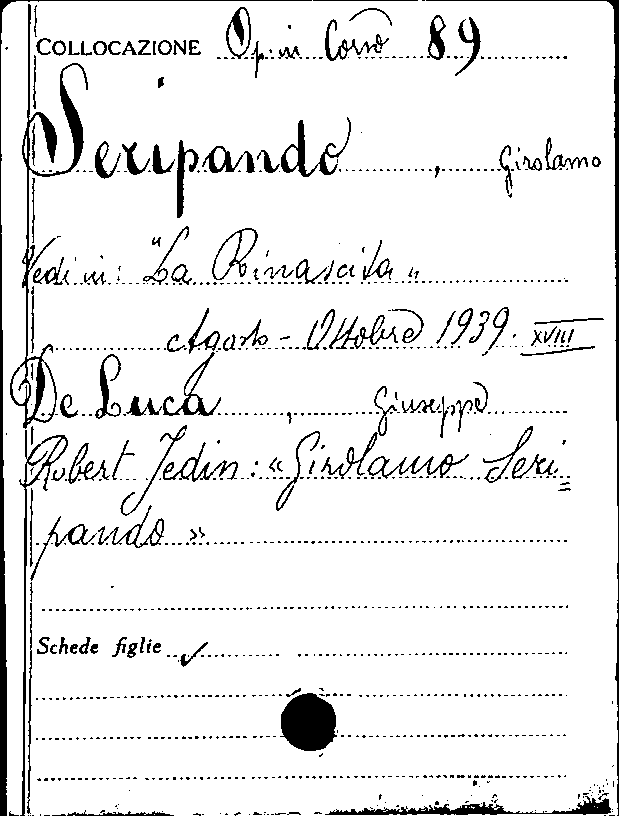 COLLOCAZIONE Op. in Corso 89
Seripando, Girolamo
Vedi in: "La Rinascita"
Agosto - Ottobre 1939. XVIII
De Luca, Giuseppe
Robert Jedin: «Girolamo Seri=
pando»
Schede figlie ✓